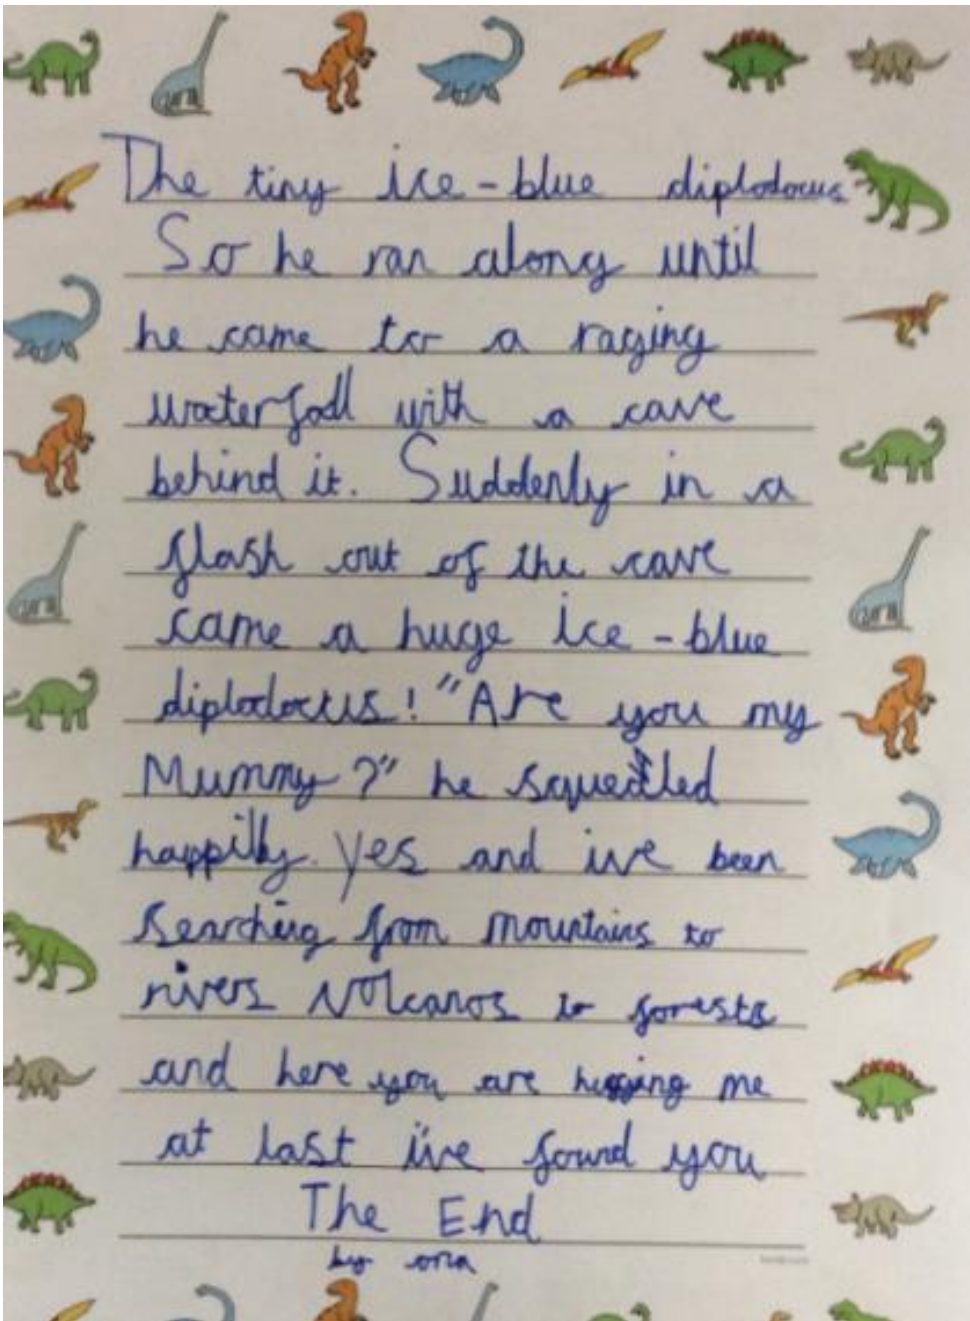 The tiny ice-blue diplodocus
So he ran along until
he came to a raging
waterfall with a cave
behind it. Suddenly in a
flash out of the cave
came a huge ice-blue
diplodocus! "Are you my
Mummy?" he squealed
happily. Yes and ive been
searching from mountains to
rivers volcanos to forests
and here you are hugging me
at last i've found you
The End
by